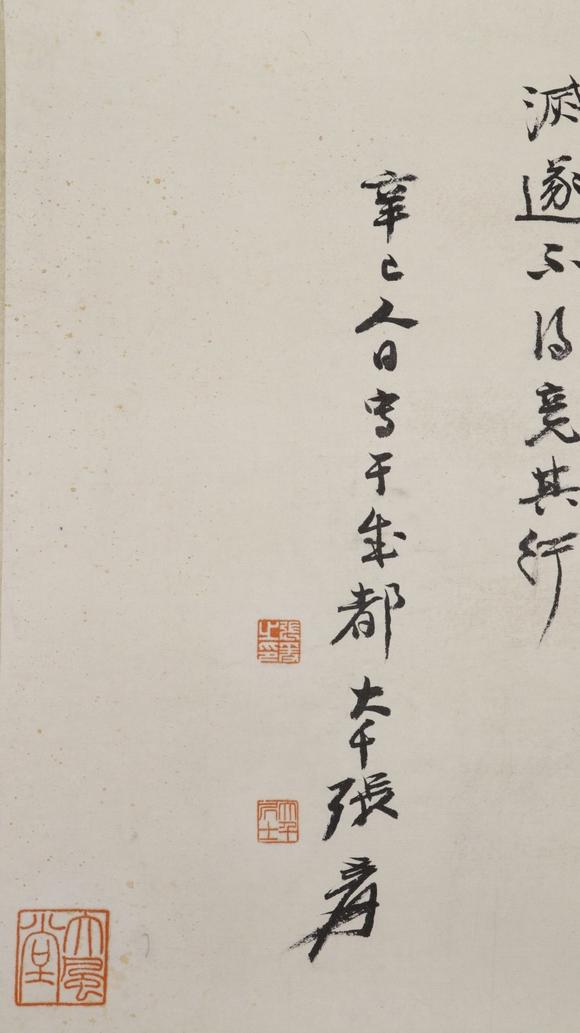 滅遂不得竟其行
辛巳人日寫于成都大千張爰
張爰之印
大千居士
大風堂